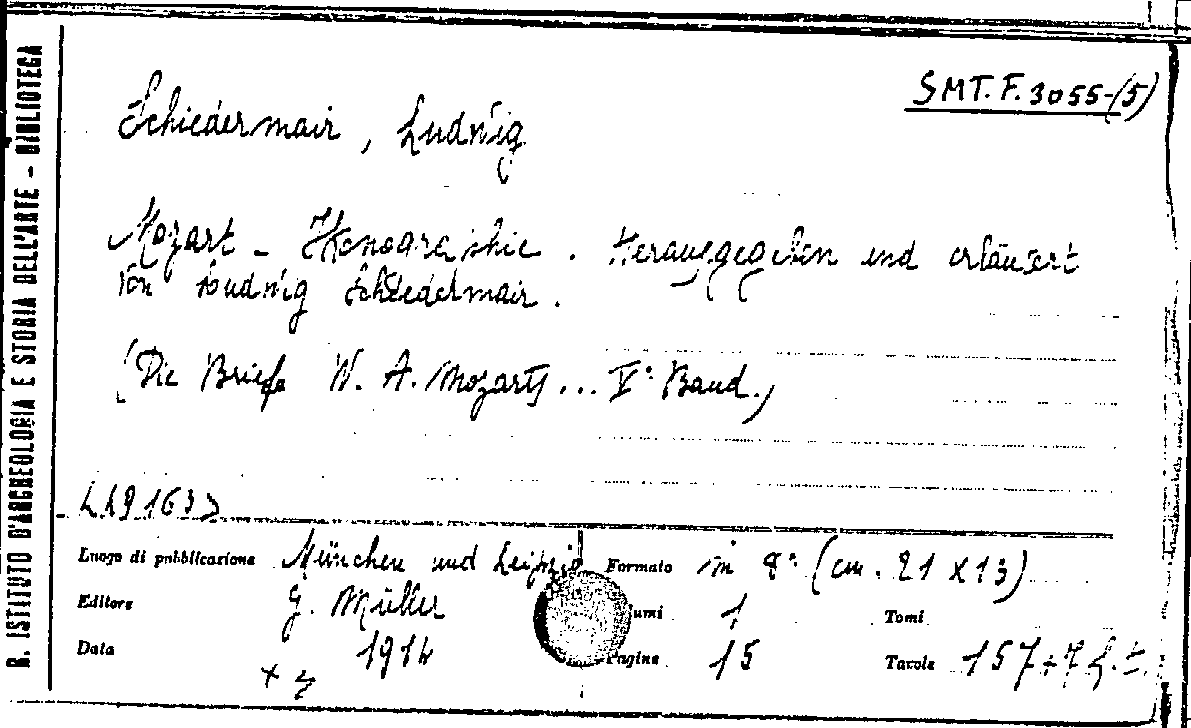 R. ISTITUTO D'ARCHEOLOGIA E STORIA DELL'ARTE - BIBLIOTECA
SMT. F. 3055-(5)
Schiedermair, Ludwig
Mozart - Ikonographie. Herausgegeben und erläutert
von Ludwig Schiedermair.
(Die Briefe W. A. Mozarts ... V° Band.)
<<9163>
Luogo di pubblicazione München und Leipzig Formato in 8° (cm. 21 x 13)
Editore G. Müller umi 1 Tomi
Data 1914 Pagine 15 Tavole 157+7 f.t.